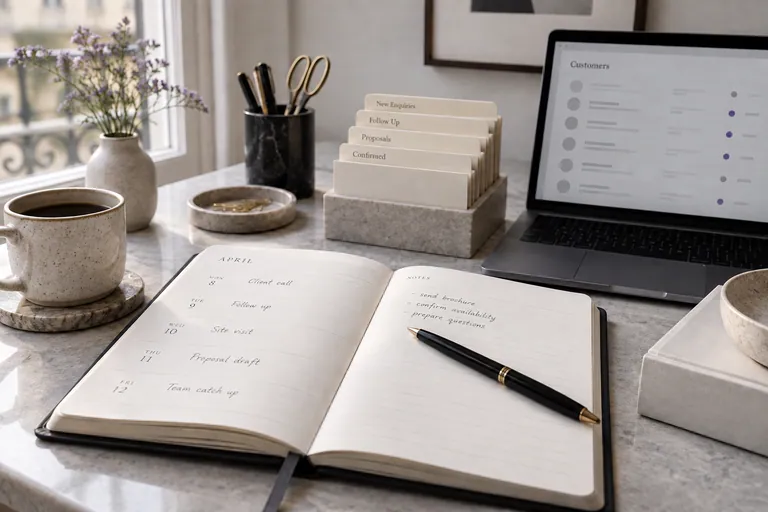 New Enquiries
Follow Up
Proposals
Confirmed
Customers
APRIL
8 Client call
TUE
9 Follow up
WED
10 Site visit
THU
11 Proposal draft
FRI
12 Team catch up
NOTES
- send brochure
- confirm availability
prepare questions